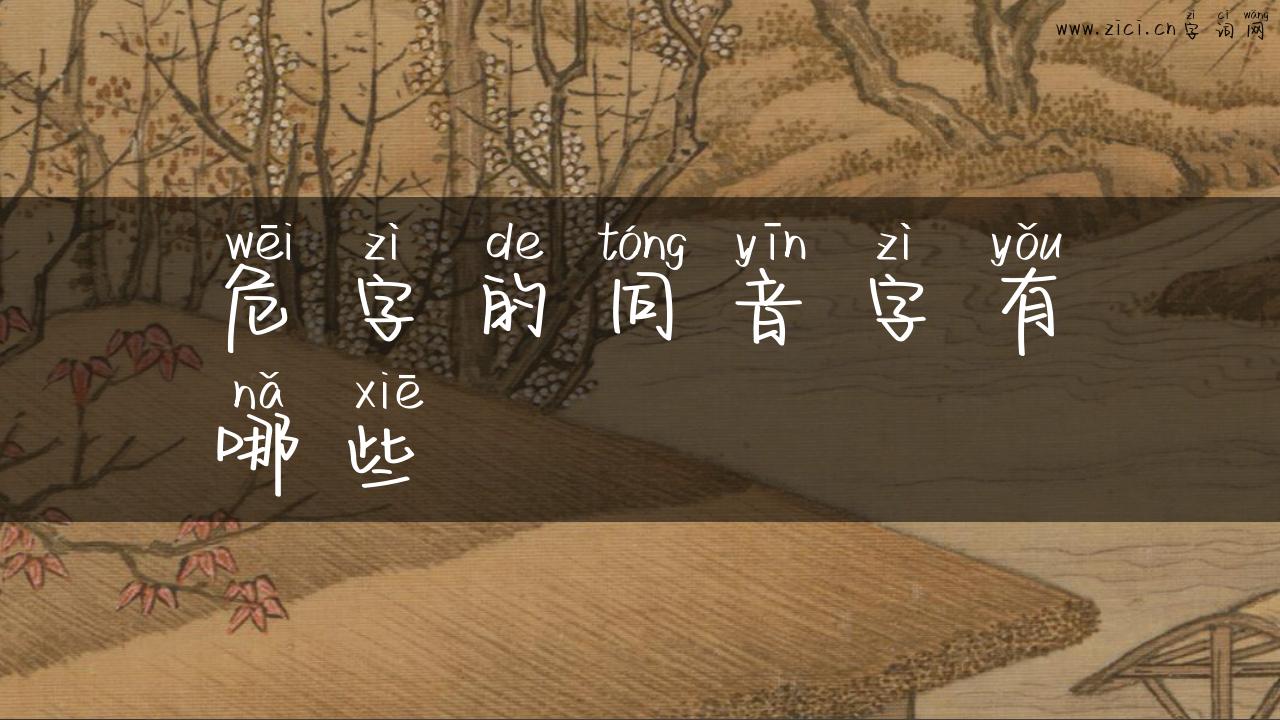 www.zici.cn字词网
zì cí wǎng
wēi zì de tóng yīn zì yǒu
危字的同音字有
nǎ xiē
哪些